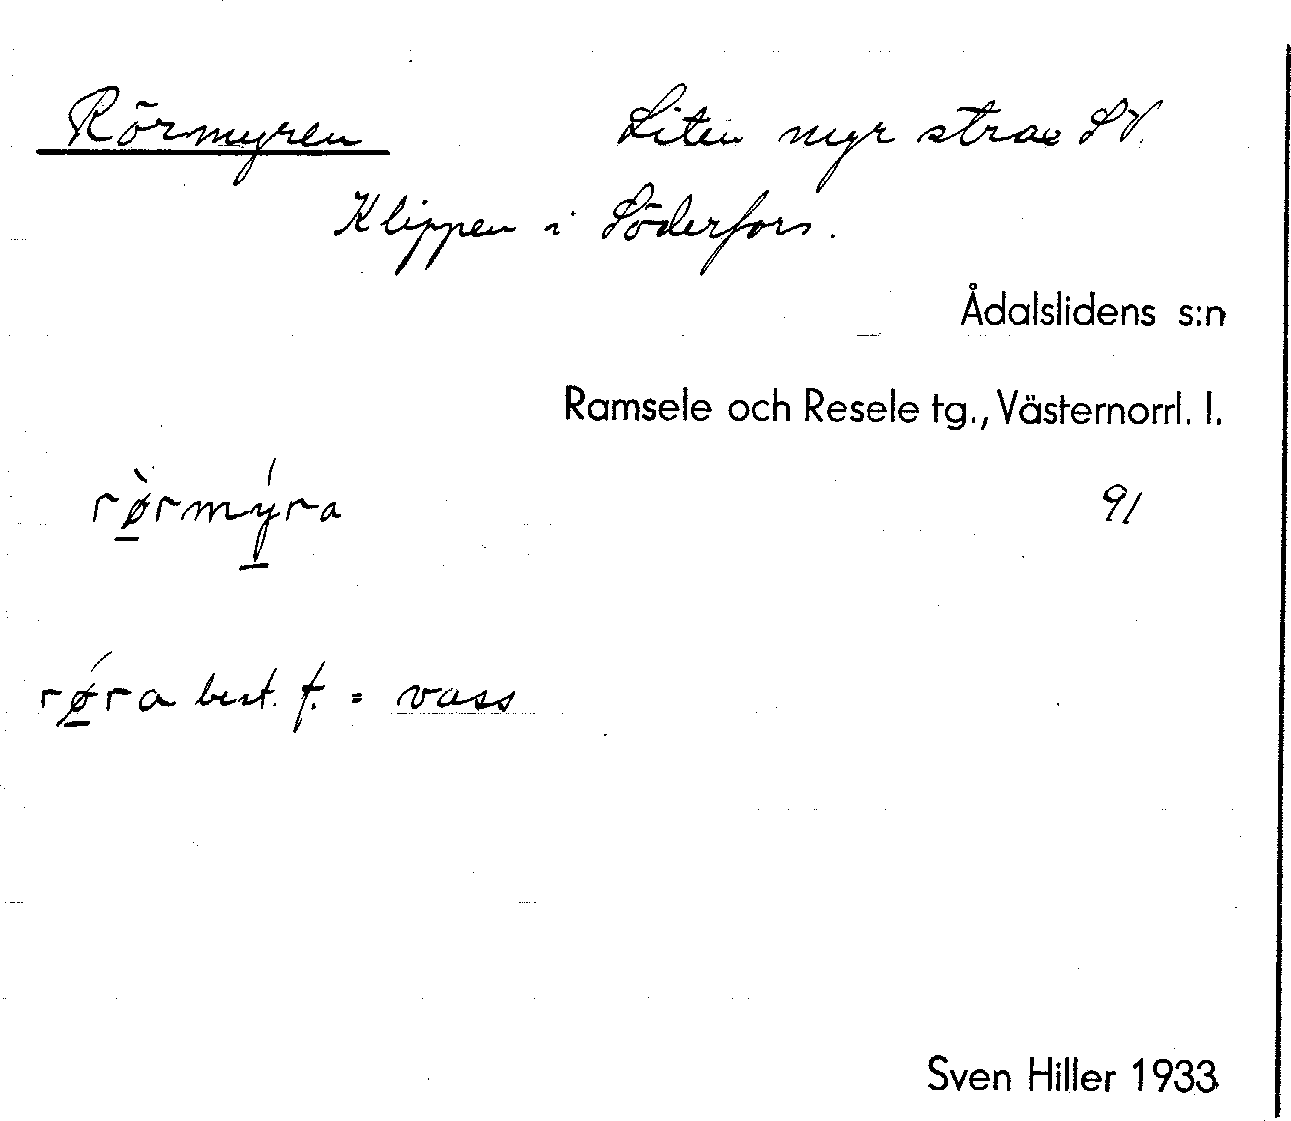 Rörmyren Liten myr strax SV.
Klippen i Söderfors.
Ådalslidens s:n
Ramsele och Resele tg., Västernorrl. l.
rø̀rmýra 91
rǿra best. f. = vass
Sven Hiller 1933